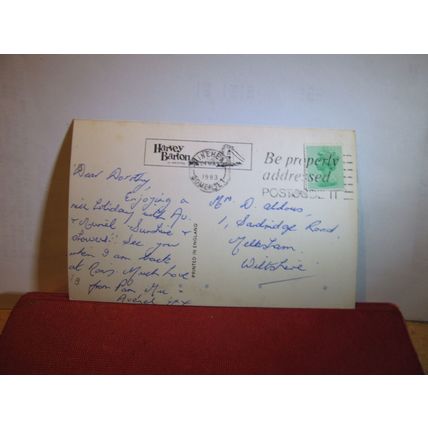 Harvey
Barton
MINEHEAD
1983
SOMERSET
Be properly
addressed
POSTCODE IT
Dear Dorothy,
Enjoying a
nice holiday with
& Muriel. Sunshine &
Showers. See you
when I am back
at Much Love
from Pam
xxx
PRINTED IN ENGLAND
Mrs D. Aldous.
1, Sandridge Road,
Melksham,
Wiltshire.